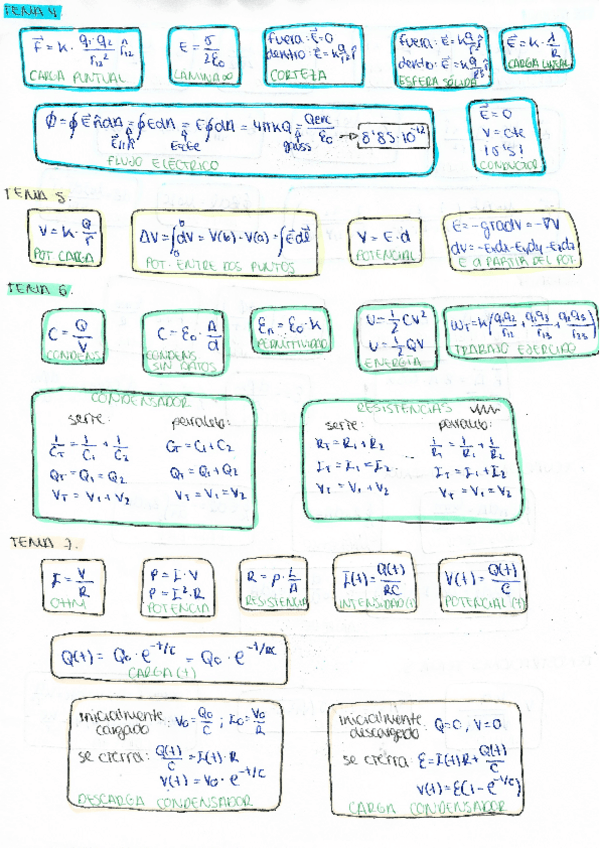 TEMA 4
F⃗ = K · q₁·q₂/r₁₂² r̂₁₂
CARGA PUNTUAL
E = σ/2ε₀
fuera: E⃗=0
dentro: E⃗=K q/r² r̂
CORTEZA
fuera: E⃗=K q/r² r̂
ESFERA SÓLIDA
E⃗ = K · λ/R
CARGA LINEAL
Φ = ∮ E⃗ n̂ dA = ∮ E dA = E ∮ dA = 4πKQ = Qenc/ε₀ → 8'85·10⁻¹²
gauss
FLUJO ELÉCTRICO
E⃗ = 0
V = cte
CONDUCTOR
TEMA 5.
V = K · Q/r
POT CARGA
ΔV = ∫ₐᵇ dV = V(b) - V(a) = ∫ E⃗ dl⃗
POT. ENTRE DOS PUNTOS
V = E · d
POTENCIAL
E = -grad V = -∇V
dV = -Exdx - Eydy - Ezdz
E A PARTIR DEL POT.
TEMA 6
C = Q/V
CONDENS
C = ε₀ · A/d
CONDENS
SIN DATOS
ε = ε₀ · K
PERMITIVIDAD
U = 1/2 CV²
U = 1/2 QV
ENERGÍA
W_T = K (q₁q₂/r₁₂ + q₁q₃/r₁₃ + q₂q₃/r₂₃)
TRABAJO EJERCIDO
CONDENSADOR
serie: paralelo:
1/C_T = 1/C₁ + 1/C₂ C_T = C₁+C₂
Q_T = Q₁ = Q₂ Q_T = Q₁+Q₂
V_T = V₁+V₂ V_T = V₁ = V₂
RESISTENCIAS
serie: paralelo:
R_T = R₁+R₂ 1/R_T = 1/R₁ + 1/R₂
I_T = I₁ = I₂ I_T = I₁+I₂
V_T = V₁+V₂ V_T = V₁ = V₂
TEMA 7.
I = V/R
OHM
P = I · V
P = I² · R
POTENCIA
R = ρ · L/A
RESISTENCIA
I(t) = Q(t)/RC
INTENSIDAD (t)
V(t) = Q(t)/C
POTENCIAL (t)
Q(t) = Q₀ · e^(-t/τ) = Q₀ · e^(-t/RC)
CARGA (t)
inicialmente cargado: V₀ = Q₀/C ; I₀ = V₀/R
se cierra: Q(t)/C = I(t) · R
V(t) = V₀ · e^(-t/τ)
DESCARGA CONDENSADOR
inicialmente descargado: Q=0, V=0
se cierra: ε = I(t)R + Q(t)/C
V(t) = ε(1 - e^(-t/τ))
CARGA CONDENSADOR